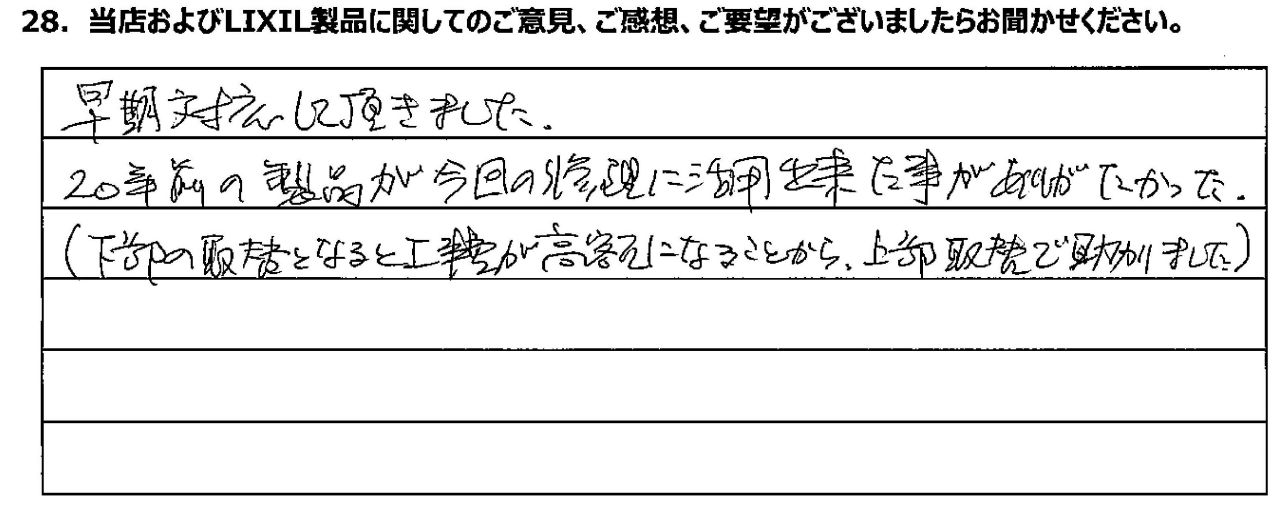 28. 当店およびLIXIL製品に関してのご意見、ご感想、ご要望がございましたらお聞かせください。
早期対応して頂きました.
20年前の製品が今回の修理に活用出来た事がありがたかった.
(下部の取替となると工事費が高額になることから、上部取替で助かりました)